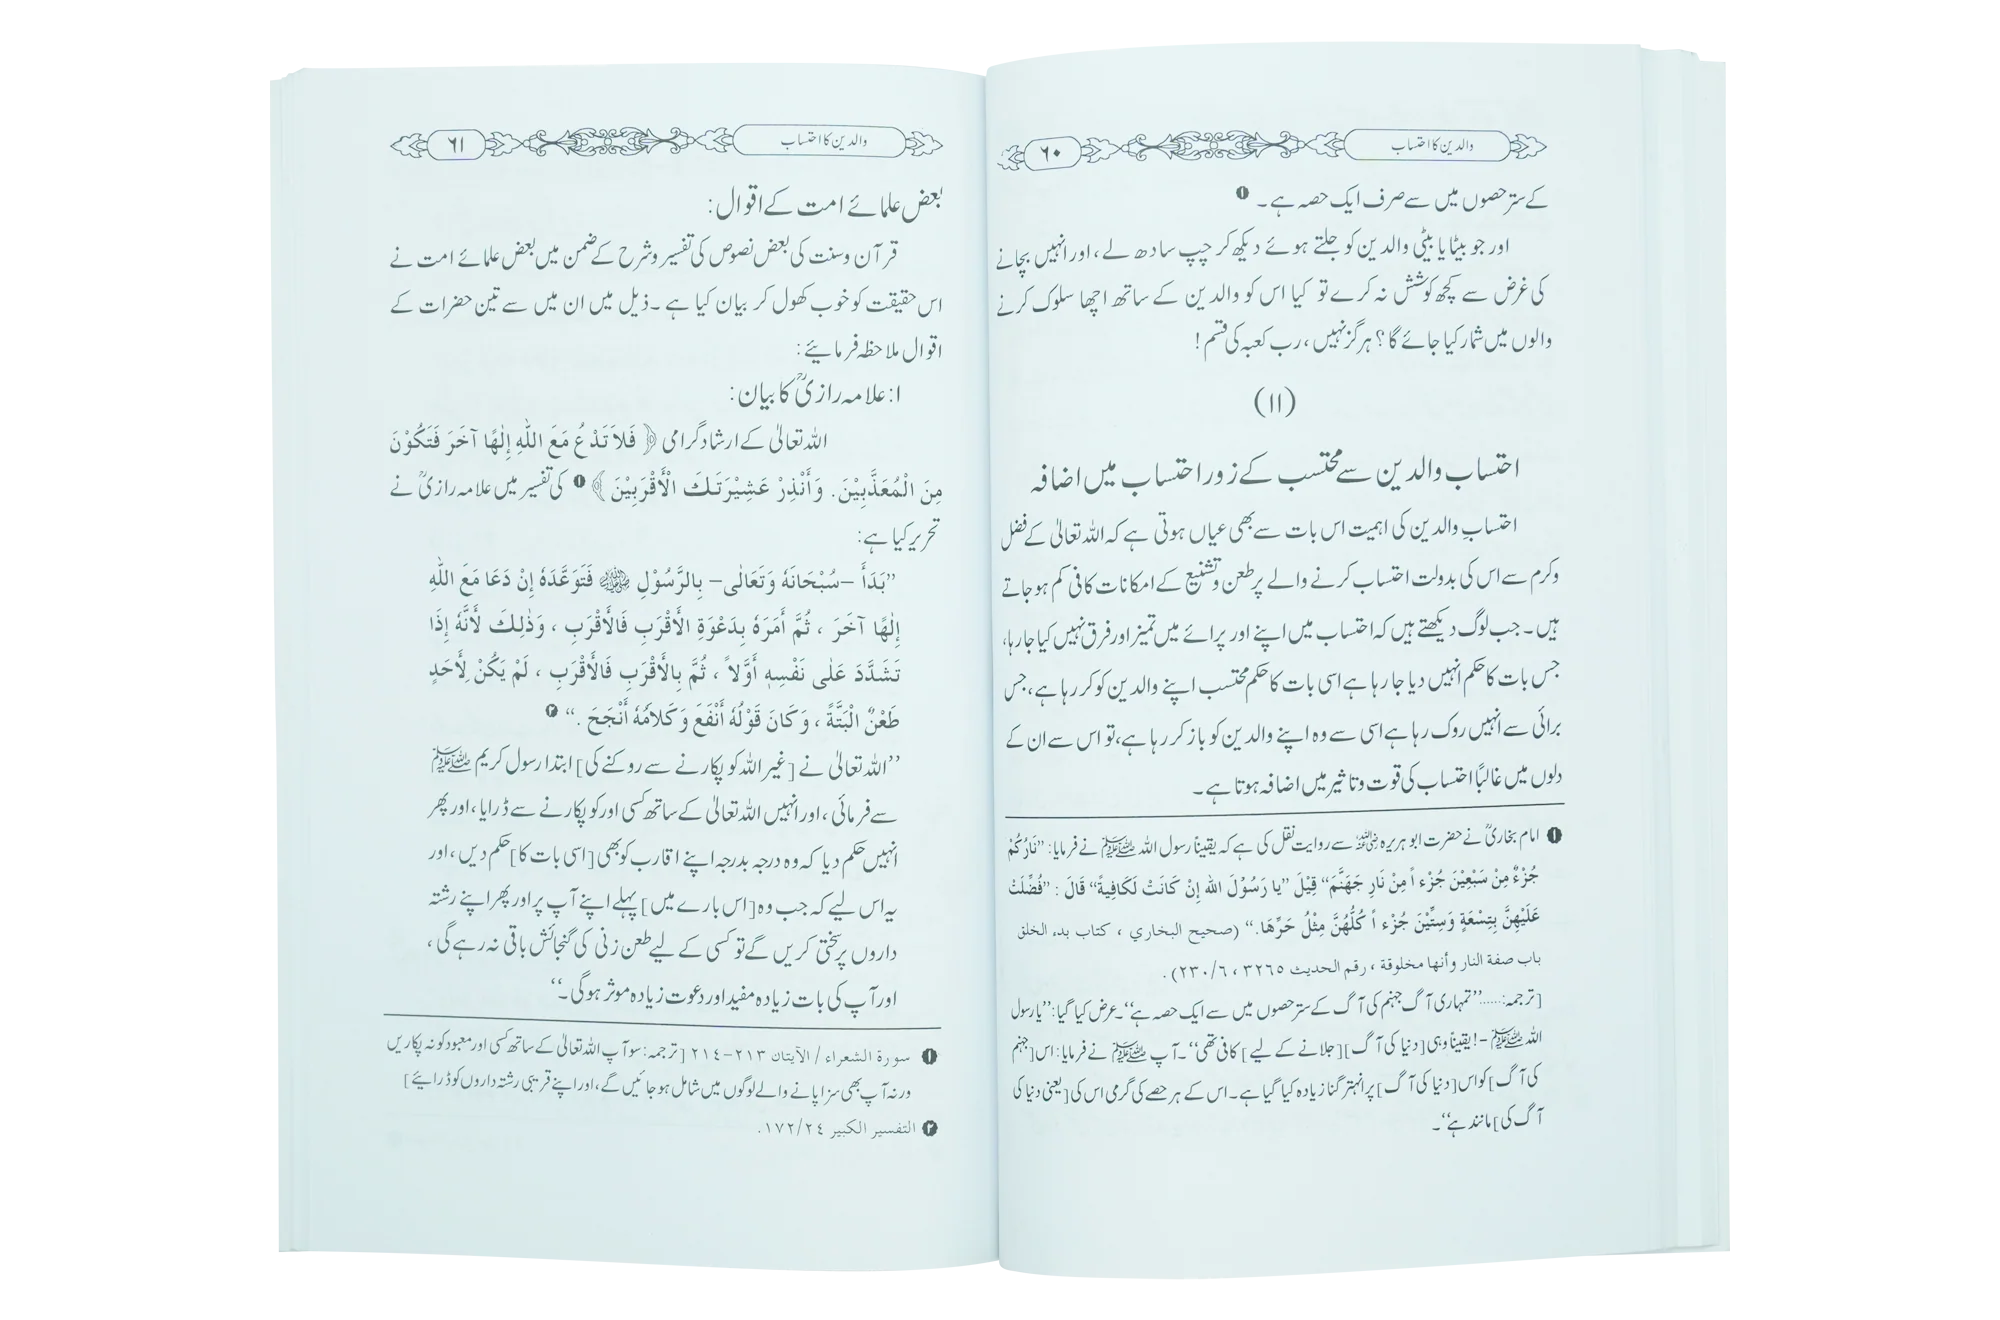 والدین کا احتساب
۶۰
کے ستر حصوں میں سے صرف ایک حصہ ہے۔ ❶
اور جو بیٹا یا بیٹی والدین کو جلتے ہوئے دیکھ کر چپ سادھ لے، اور انہیں بچانے
کی غرض سے کچھ کوشش نہ کرے تو کیا اس کو والدین کے ساتھ اچھا سلوک کرنے
والوں میں شمار کیا جائے گا؟ ہرگز نہیں، رب کعبہ کی قسم!
(۱۱)
احتساب والدین سے محتسب کے زور احتساب میں اضافہ
احتسابِ والدین کی اہمیت اس بات سے بھی عیاں ہوتی ہے کہ اللہ تعالیٰ کے فضل
و کرم سے اس کی بدولت احتساب کرنے والے پر طعن و تشنیع کے امکانات کافی کم ہو جاتے
ہیں۔ جب لوگ دیکھتے ہیں کہ احتساب میں اپنے اور پرائے میں تمیز اور فرق نہیں کیا جا رہا،
جس بات کا حکم انہیں دیا جا رہا ہے اسی بات کا حکم محتسب اپنے والدین کو کر رہا ہے، جس
برائی سے انہیں روک رہا ہے اسی سے وہ اپنے والدین کو باز کر رہا ہے، تو اس سے ان کے
دلوں میں غالبًا احتساب کی قوت و تاثیر میں اضافہ ہوتا ہے۔
❶ امام بخاریؒ نے حضرت ابو ہریرہ رضی اللہ عنہ سے روایت نقل کی ہے کہ یقیناً رسول اللہ ﷺ نے فرمایا: ”نَارُكُمْ
جُزْءٌ مِنْ سَبْعِيْنَ جُزْءاً مِنْ نَارِ جَهَنَّمَ“ قِيْلَ ”يا رَسُوْلَ الله إِنْ كَانَتْ لَكَافِيةً“ قَالَ : ”فُضِّلَتْ
عَلَيْهِنَّ بِتِسْعَةٍ وَسِتِّيْنَ جُزْءاً كُلُّهُنَّ مِثْلُ حَرِّهَا.“ (صحيح البخاري ، كتاب بدء الخلق
باب صفة النار وأنها مخلوقة ، رقم الحديث ٣٢٦٥ ، ٢٣٠/٦) .
[ترجمہ:......”تمہاری آگ جہنم کی آگ کے ستر حصوں میں سے ایک حصہ ہے“۔ عرض کیا گیا: ”یا رسول
اللہ ﷺ -! یقیناً وہی [دنیا کی آگ] [جلانے کے لیے] کافی تھی“۔ آپ ﷺ نے فرمایا: اس [جہنم
کی آگ] کو اس [دنیا کی آگ] پر انہتر گنا زیادہ کیا گیا ہے۔ اس کے ہر حصے کی گرمی اس کی [یعنی دنیا کی
آگ کی] مانند ہے“۔
والدین کا احتساب
۶۱
بعض علمائے امت کے اقوال:
قرآن و سنت کی بعض نصوص کی تفسیر و شرح کے ضمن میں بعض علمائے امت نے
اس حقیقت کو خوب کھول کر بیان کیا ہے۔ ذیل میں ان میں سے تین حضرات کے
اقوال ملاحظہ فرمایئے:
۱: علامہ رازیؒ کا بیان:
اللہ تعالیٰ کے ارشاد گرامی ﴿ فَلاَ تَدْعُ مَعَ اللّٰهِ إِلٰهًا آخَرَ فَتَكُوْنَ
مِنَ الْمُعَذَّبِيْنَ. وَأَنْذِرْ عَشِيْرَتَكَ الْأَقْرَبِيْنَ ﴾ ❶ کی تفسیر میں علامہ رازیؒ نے
تحریر کیا ہے:
”بَدَأَ –سُبْحَانَهُ وَتَعَالٰى– بِالرَّسُوْلِ ﷺ فَتَوَعَّدَهُ إِنْ دَعَا مَعَ اللّٰهِ
إِلٰهًا آخَرَ ، ثُمَّ أَمَرَهُ بِدَعْوَةِ الْأَقْرَبِ فَالْأَقْرَبِ ، وَذٰلِكَ لأَنَّهُ إِذَا
تَشَدَّدَ عَلٰى نَفْسِهِ أَوَّلاً ، ثُمَّ بِالْأَقْرَبِ فَالْأَقْرَبِ ، لَمْ يَكُنْ لِأَحَدٍ
طَعْنٌ الْبَتَّةَ ، وَكَانَ قَوْلُهُ أَنْفَعَ وَكَلاَمُهُ أَنْجَحَ .“ ❷
”اللہ تعالیٰ نے [غیر اللہ کو پکارنے سے روکنے کی] ابتدا رسول کریم ﷺ
سے فرمائی، اور انہیں اللہ تعالیٰ کے ساتھ کسی اور کو پکارنے سے ڈرایا، اور پھر
انہیں حکم دیا کہ وہ درجہ بدرجہ اپنے اقارب کو بھی [اسی بات کا] حکم دیں، اور
یہ اس لیے کہ جب وہ [اس بارے میں] پہلے اپنے آپ پر اور پھر اپنے رشتہ
داروں پر سختی کریں گے تو کسی کے لیے طعن زنی کی گنجائش باقی نہ رہے گی،
اور آپ کی بات زیادہ مفید اور دعوت زیادہ موثر ہوگی۔“
❶ سورة الشعراء / الآيتان ٢١٣–٢١٤ [ترجمہ: سو آپ اللہ تعالیٰ کے ساتھ کسی اور معبود کو نہ پکاریں
ورنہ آپ بھی سزا پانے والے لوگوں میں شامل ہو جائیں گے، اور اپنے قریبی رشتہ داروں کو ڈرایئے]
❷ التفسير الكبير ١٧٢/٢٤.